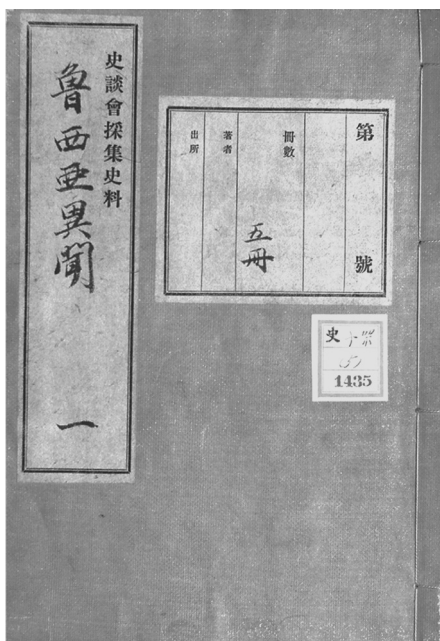 史談會採集史料
魯西亜異聞
一
第 號
冊數
五冊
著者
出所
史
1435